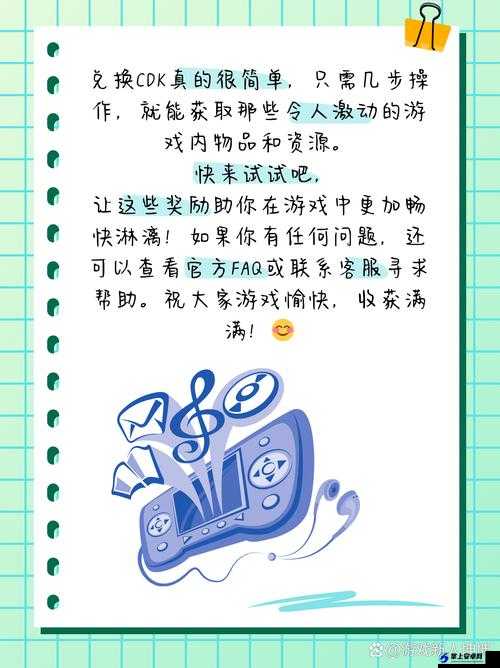 兑换CDK真的很简单，只需几步操
作，就能获取那些令人激动的游
戏内物品和资源。
快来试试吧，
让这些奖励助你在游戏中更加畅
快淋漓！如果你有任何问题，还
可以查看官方FAQ或联系客服寻求
帮助。祝大家游戏愉快，收获满
满！😊
掌上安卓网